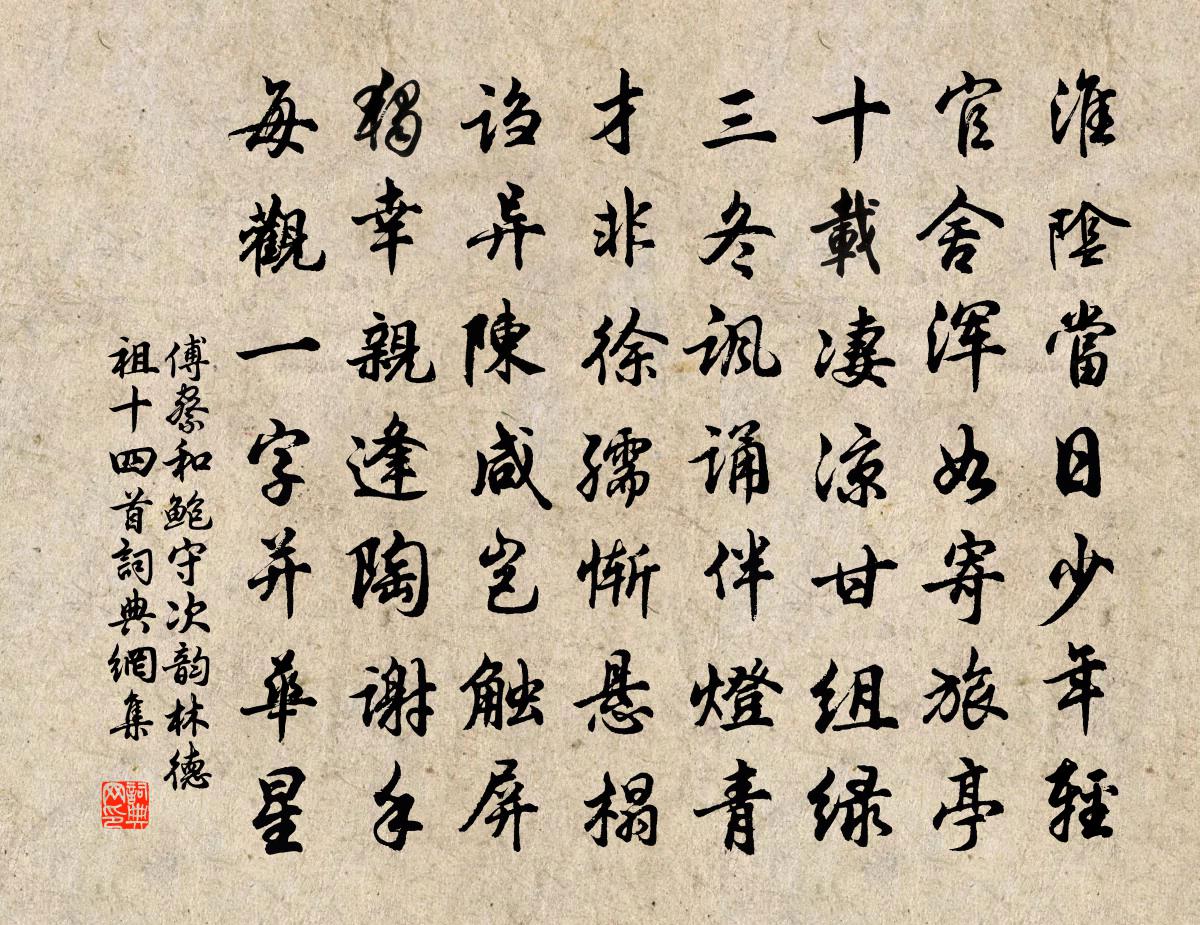 淮陰當日少年輕
官舍浑如寄旅亭
十載凄凉甘组绿
三冬讽诵伴燈青
才非徐孺惭悬榻
谄异陳咸岂触屏
獨幸親逢陶谢手
每觀一字并華星
傅察和鲍守次韵林德
祖十四首詞典網集
詞典
网印